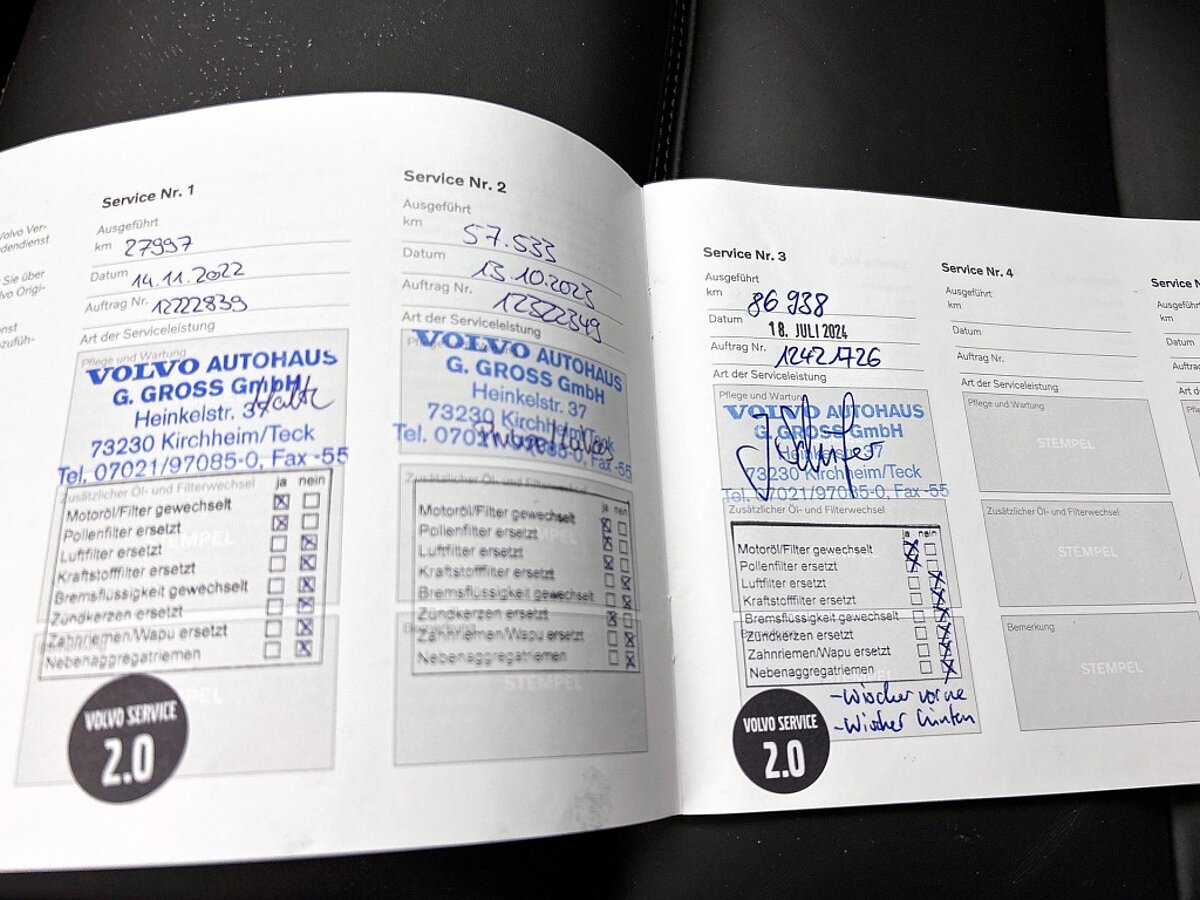 Volvo Ver-
dendienst
Sie über
vo Origi-
nst
zufüh-
Service Nr. 1
Ausgeführt
km 27997
Datum 14.11.2022
Auftrag Nr. 12222839
Art der Serviceleistung
Pflege und Wartung
VOLVO AUTOHAUS
G. GROSS GmbH
Heinkelstr. 37
73230 Kirchheim/Teck
Tel. 07021/97085-0, Fax -55
Zusätzlicher Öl- und Filterwechsel
ja nein
Motoröl/Filter gewechselt
Pollenfilter ersetzt
Luftfilter ersetzt
Kraftstofffilter ersetzt
Bremsflüssigkeit gewechselt
Zündkerzen ersetzt
Zahnriemen/Wapu ersetzt
Nebenaggregatriemen
VOLVO SERVICE
2.0
Service Nr. 2
Ausgeführt
km 57.533
Datum 13.10.2023
Auftrag Nr. 12322349
Art der Serviceleistung
VOLVO AUTOHAUS
G. GROSS GmbH
Heinkelstr. 37
73230 Kirchheim/Teck
Tel. 07021/97085-0, Fax -55
Zusätzlicher Öl- und Filterwechsel
ja nein
Motoröl/Filter gewechselt
Pollenfilter ersetzt
Luftfilter ersetzt
Kraftstofffilter ersetzt
Bremsflüssigkeit gewechselt
Zündkerzen ersetzt
Zahnriemen/Wapu ersetzt
Nebenaggregatriemen
STEMPEL
Service Nr. 3
Ausgeführt
km 86 938
Datum 18. JULI 2024
Auftrag Nr. 12421726
Art der Serviceleistung
Pflege und Wartung
VOLVO AUTOHAUS
G. GROSS GmbH
Heinkelstr. 37
73230 Kirchheim/Teck
Tel. 07021/97085-0, Fax -55
Zusätzlicher Öl- und Filterwechsel
ja nein
Motoröl/Filter gewechselt
Pollenfilter ersetzt
Luftfilter ersetzt
Kraftstofffilter ersetzt
Bremsflüssigkeit gewechselt
Zündkerzen ersetzt
Zahnriemen/Wapu ersetzt
Nebenaggregatriemen
-Wischer vorne
-Wischer hinten
VOLVO SERVICE
2.0
Service Nr. 4
Ausgeführt
km
Datum
Auftrag Nr.
Art der Serviceleistung
Pflege und Wartung
STEMPEL
Zusätzlicher Öl- und Filterwechsel
STEMPEL
Bemerkung
STEMPEL
Service N
Ausgeführt
km
Datum
Auftra
Art d